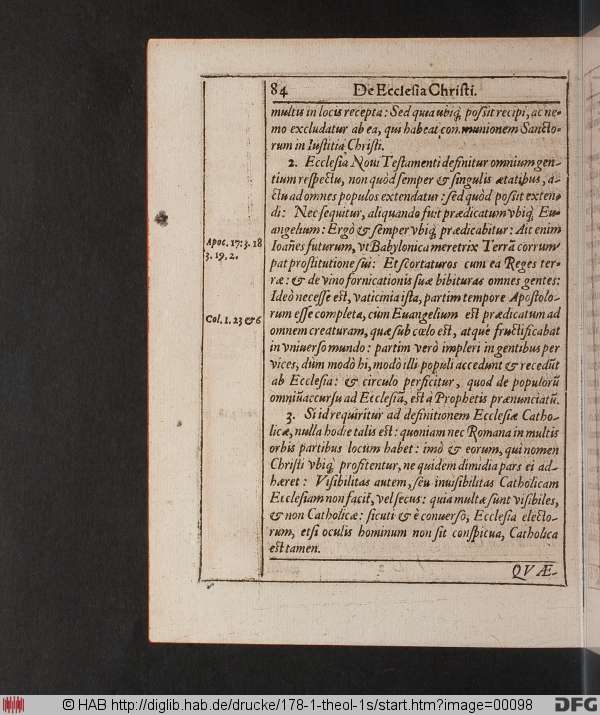 84 De Ecclesia Christi.
multis in locis recepta: Sed quia ubiq; possit recipi, ac ne-
mo excludatur ab ea, qui habeat communionem Sancto-
rum in Iustitia Christi.
2. Ecclesia Noui Testamenti definitur omnium gen-
tium respectu, non quòd semper & singulis ætatibus, a-
ctu ad omnes populos extendatur: sed quòd possit exten-
di: Nec sequitur, aliquando fuit prædicatum vbiq; Eu-
angelium: Ergò & semper vbiq; prædicabitur: Ait enim
Apoc. 17. 3. 18
Ioañes futurum, vt Babylonica meretrix Terrã corrum-
3. 19, 2.
pat prostitutione sui: Et scortaturos cum ea Reges ter-
ræ: & de vino fornicationis suæ bibituras omnes gentes:
Ideò necesse est, vaticinia ista, partim tempore Apostolo-
Col. 1. 23 & 6
rum esse completa, cùm Euangelium est prædicatum ad
omnem creaturam, quæ sub cœlo est, atque fructificabat
in vniuerso mundo: partim verò impleri in gentibus per
vices, dum modò hi, modò illi populi accedunt & recedũt
ab Ecclesia: & circulo perficitur, quod de populorũ
omniũ accursu ad Ecclesiã, est à Prophetis prænunciatũ.
3. Si id requiritur ad definitionem Ecclesiæ Catho-
licæ, nulla hodie talis est: quoniam nec Romana in multis
orbis partibus locum habet: imò & eorum, qui nomen
Christi vbiq; profitentur, ne quidem dimidia pars ei ad-
hæret: Visibilitas autem, seu inuisibilitas Catholicam
Ecclesiam non facit, vel secus: quia multæ sunt visibiles,
& non Catholicæ: sicuti & è conuerso, Ecclesia electo-
rum, etsi oculis hominum non sit conspicua, Catholica
est tamen.
QVÆ-
© HAB http://diglib.hab.de/drucke/178-1-theol-1s/start.htm?image=00098
DFG